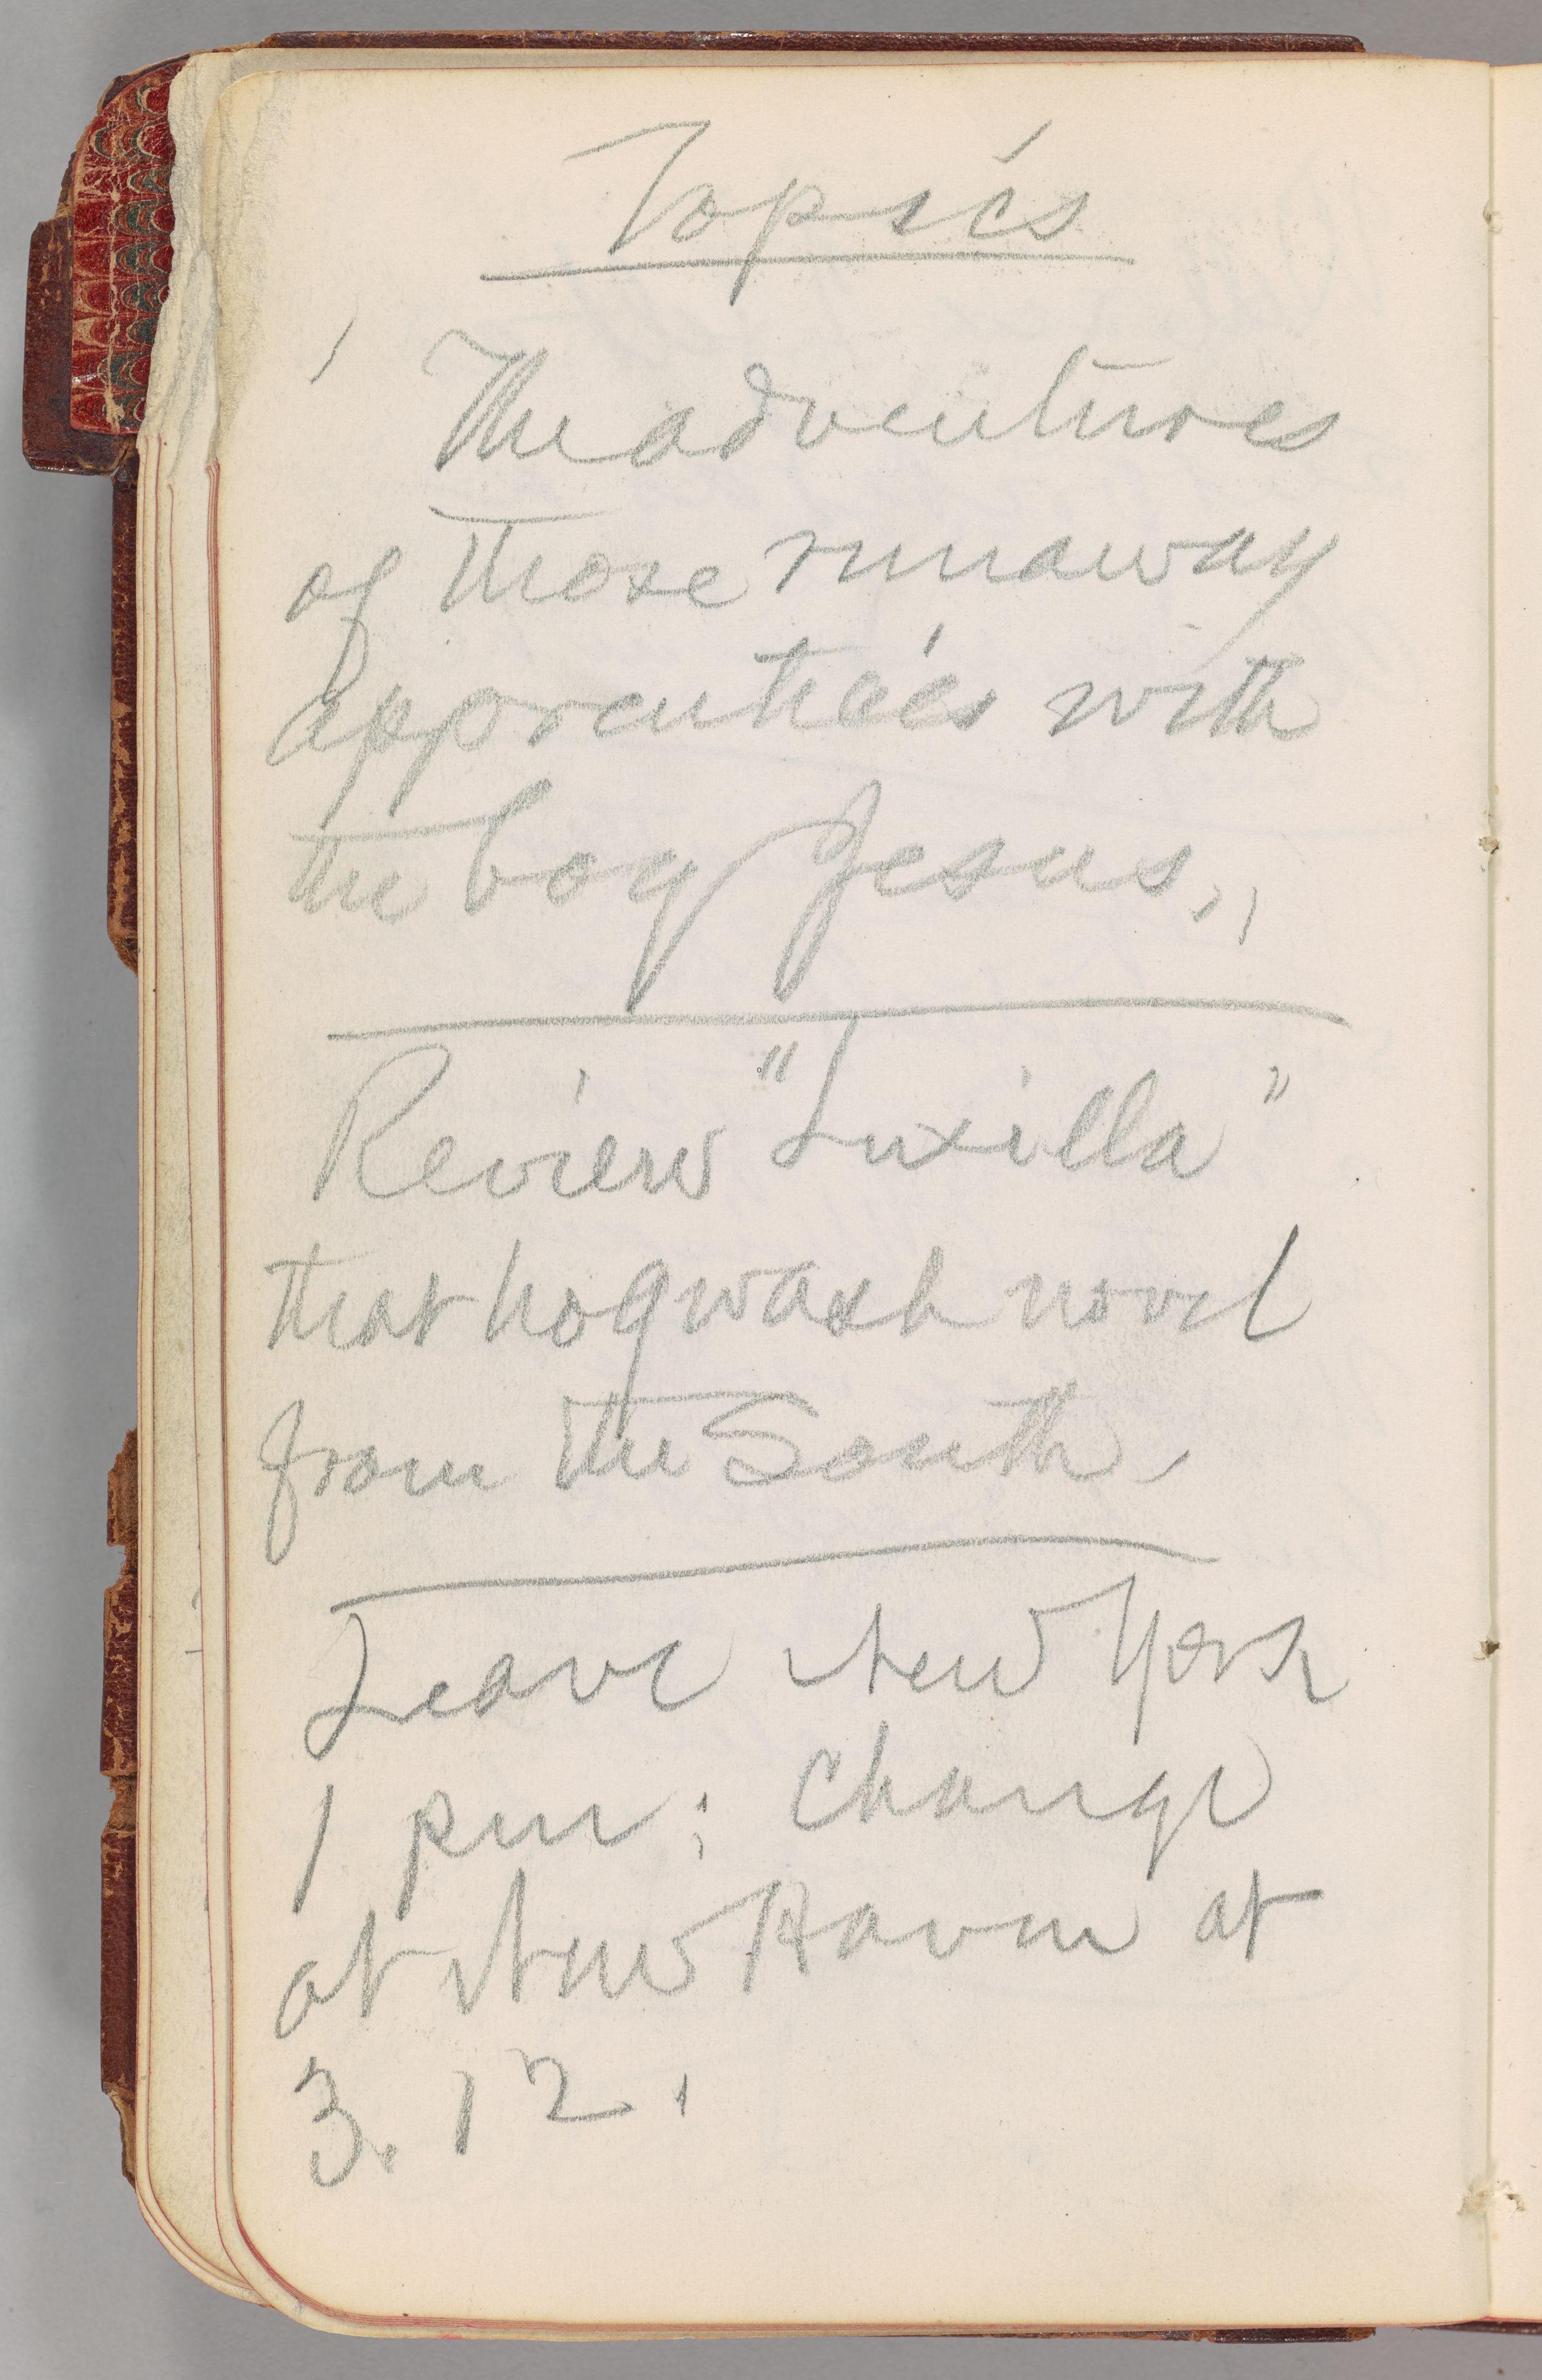 Topics
The adventures
of those runaway
apprentices with
the boy Jesus,,
Review "Luxilla"
that hogwash novel
from the South.
Leave New York
1 pm; change
at New Haven at
3.12.